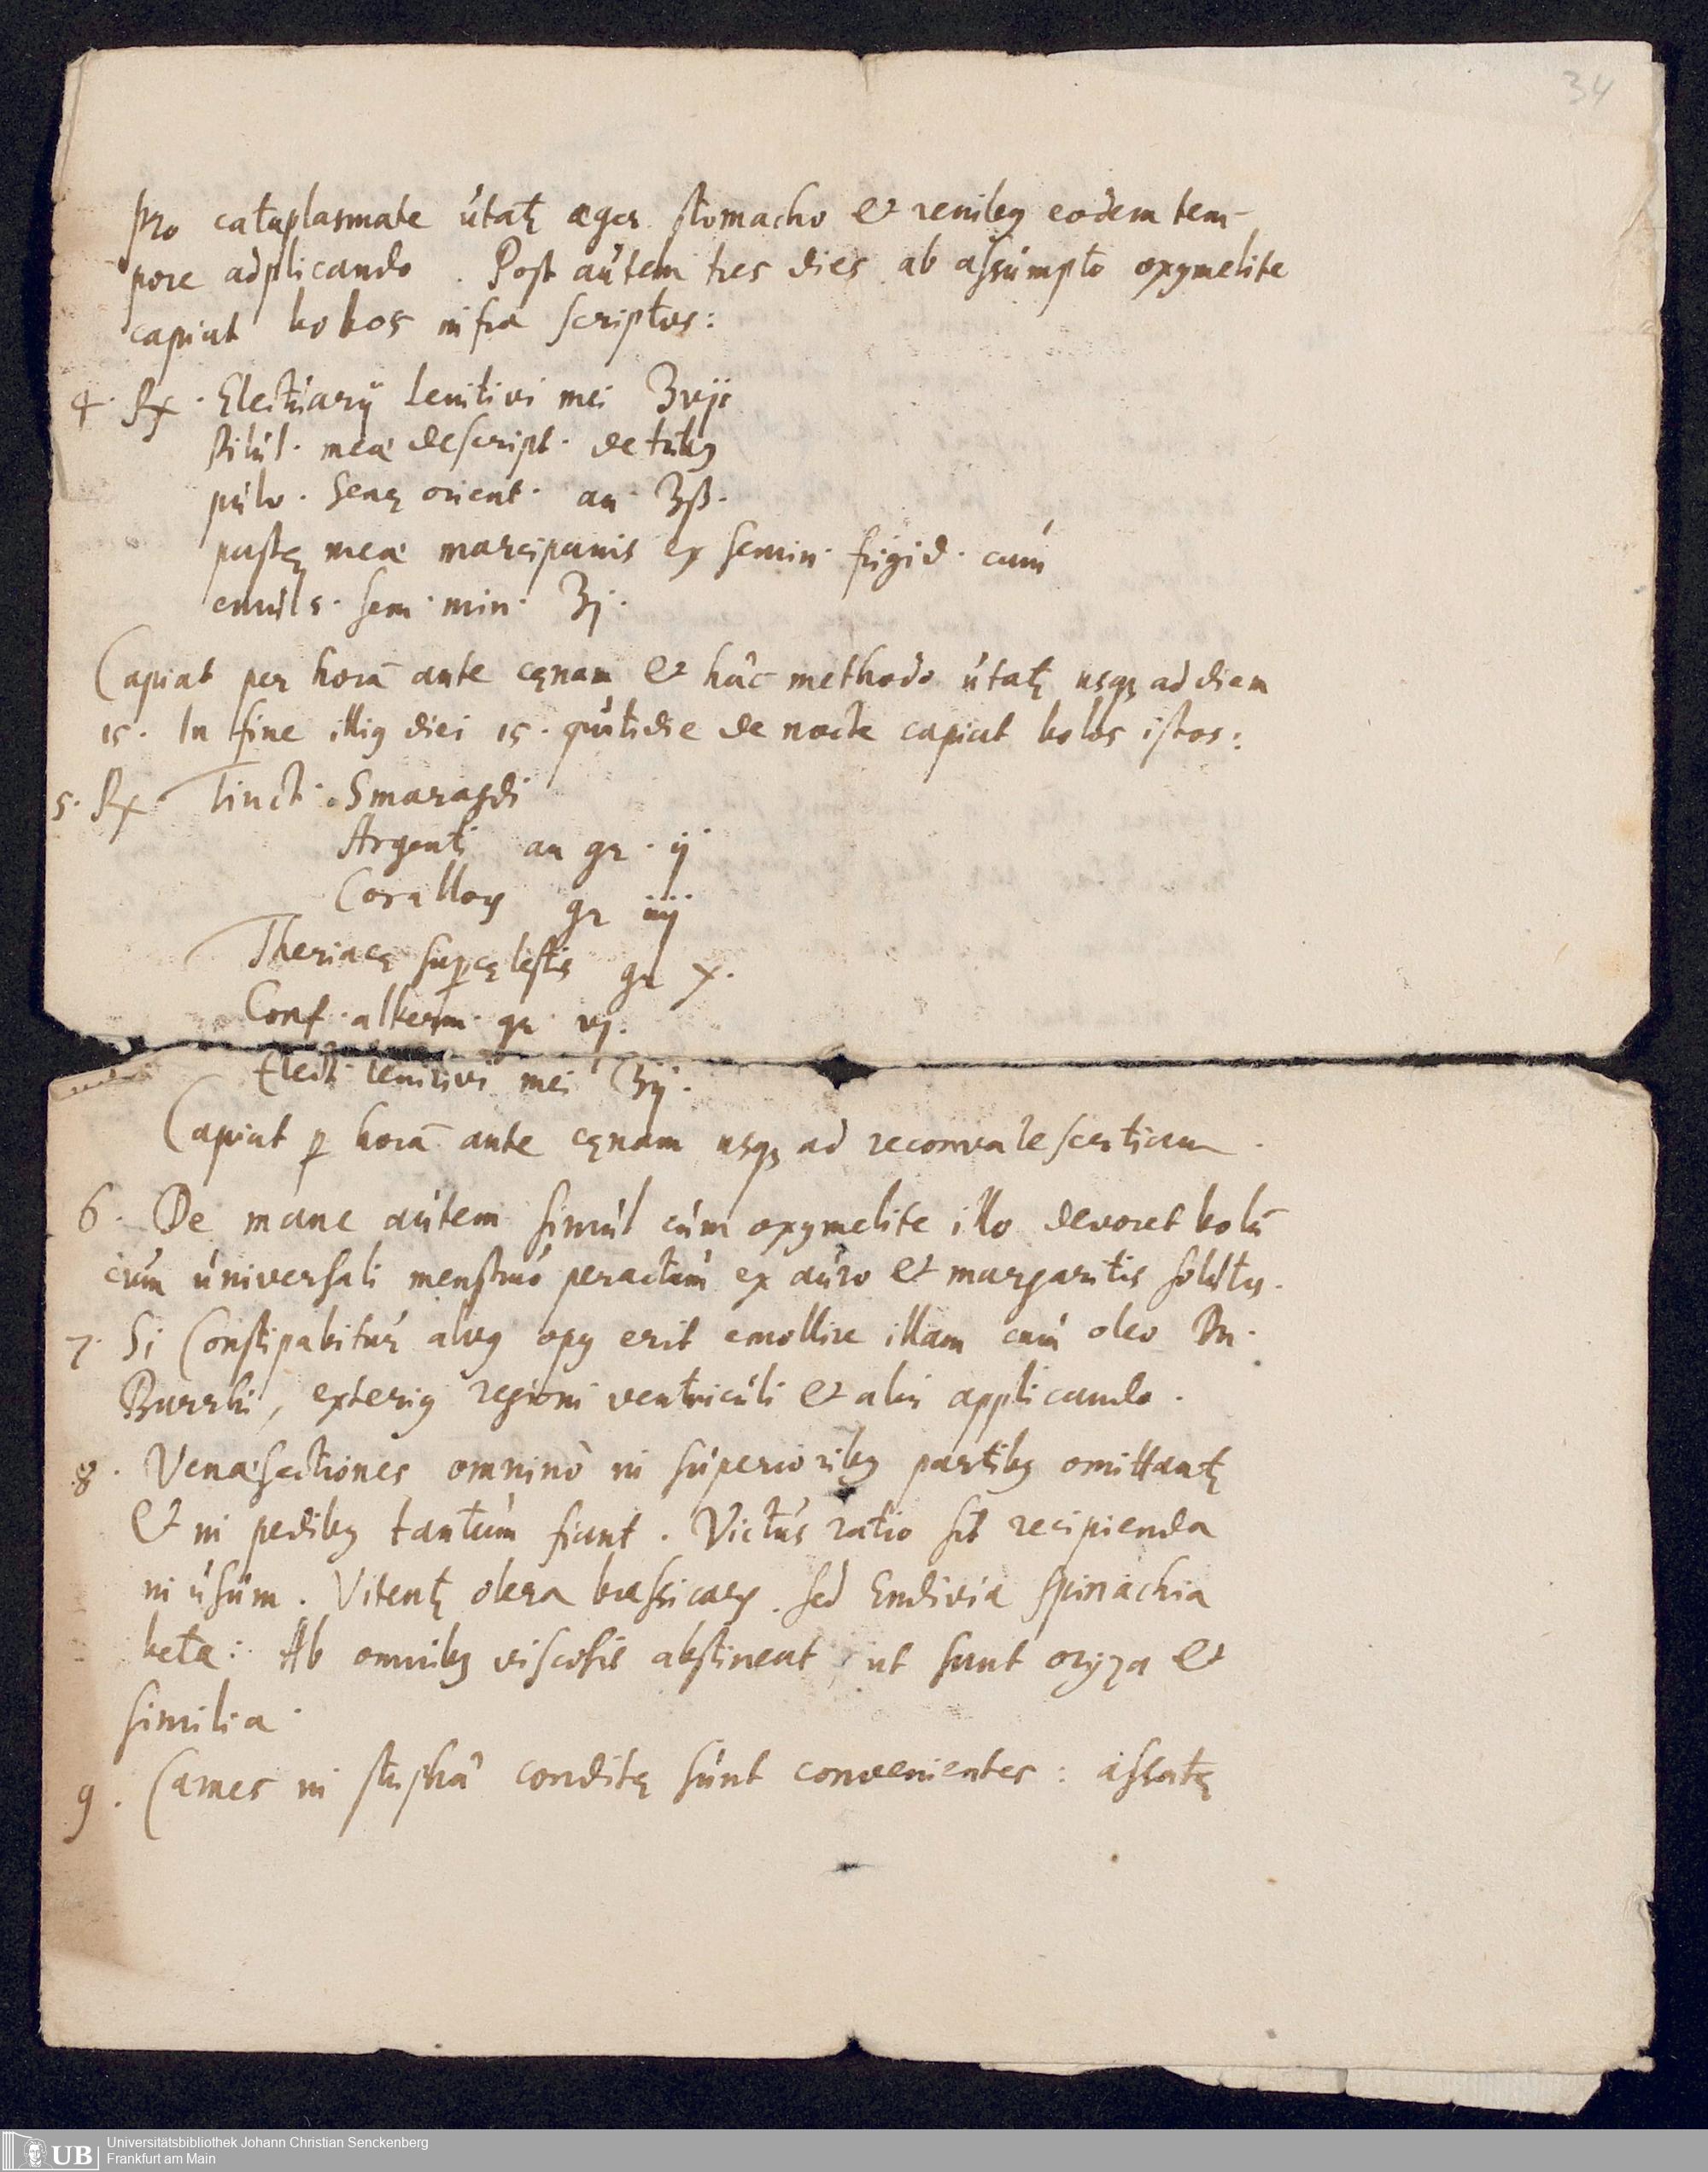 34
pro cataplasmate útatꝫ æger stomacho & renibꝯ eodem tem-
pore adplicando. Post aútem tres dies ab assúmpto oxymelite
capiat bobos infra scriptos:
4. ℞. Electúarÿ Lenitivi mei ʒvjj
Pilúl. meæ descript. de tribꝯ
púlv. Senę orient. an. ʒß.
pastę meæ marcipanis ex semin. frigid. cúm
emúls. sem. min. ʒj.
Capiat per horā ante cęnam & hâc methodo útatꝫ usqꝫ ad diem
15. In fine illiꝯ diei 15. qútidie de nocte capiat bolos istos:
5. ℞ Tinct. Smaragdi
Argenti an gr. ij
Coralloꝝ gr iiij
Theriacę supcęlestis gr x.
Conf. alkerm. gr. vj.
Elect. lenitivi mei ʒij.
Capiat ꝑ horā ante cęnam usqꝫ ad reconvalescentiam.
6. De mane aútem simúl cúm oxymelite illo devoret bolū
cúm úniversali menstrúo peractúm ex aúro & margaritis solútis.
7. Si Constipabitúr alvꝯ opꝯ erit emollire illam cúm oleo Dn.
Burrhi, exteriꝯ regioni ventricúli & alvi applicando.
8. Venæsectiones omninò in súperioribꝯ partibꝯ omittantꝫ
& in pedibꝯ tantúm fiant. Victús ratio sit recipienda
in úsúm. Vitentꝫ olera brassicarꝝ. sed Endivia spinachia
beta: Ab omnibꝯ viscosis abstineat, ut sunt oryza &
similia.
9. Carnes in stúphâ conditę súnt convenientes: assatę
UB
Universitätsbibliothek Johann Christian Senckenberg
Frankfurt am Main